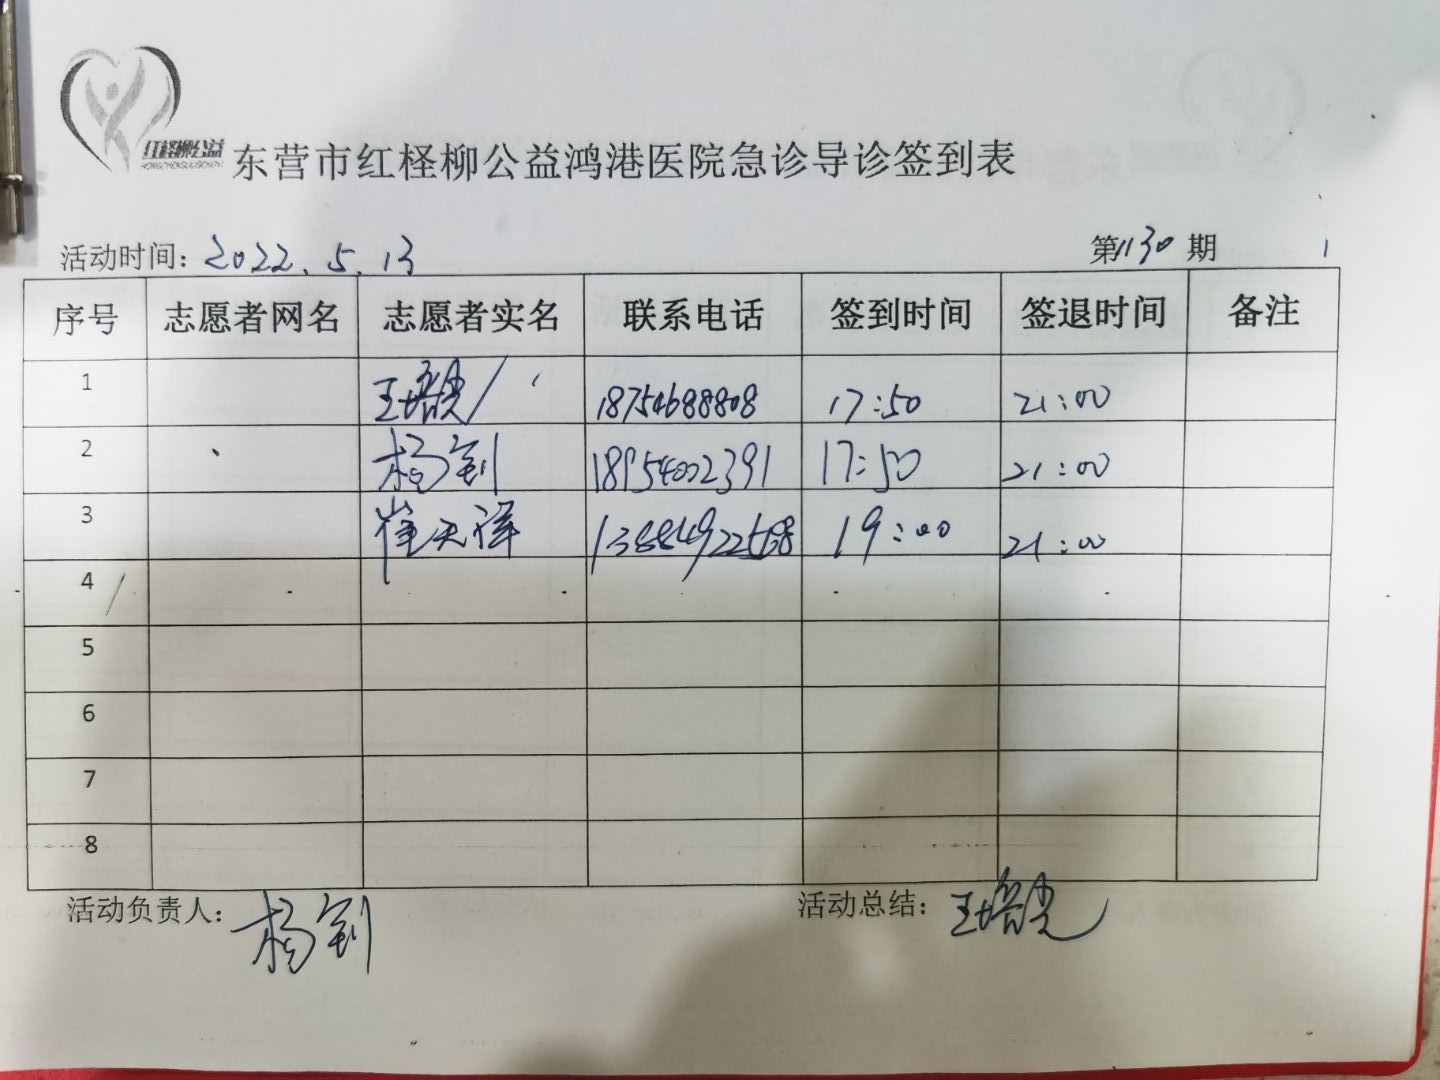 红柽柳公益
东营市红柽柳公益鸿港医院急诊导诊签到表
活动时间：2022.5.13 第1130期
序号 志愿者网名 志愿者实名 联系电话 签到时间 签退时间 备注
1 王培 18754688808 17:50 21:00
2 杨剑 18954002391 17:50 21:00
3 崔天祥 19:00 21:00
4
5
6
7
8
活动负责人：杨剑 活动总结：王培